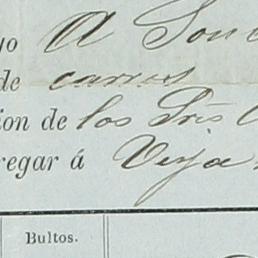 yo A Son
de carros
ion de los Srēs
regar á Veja
Bultos.